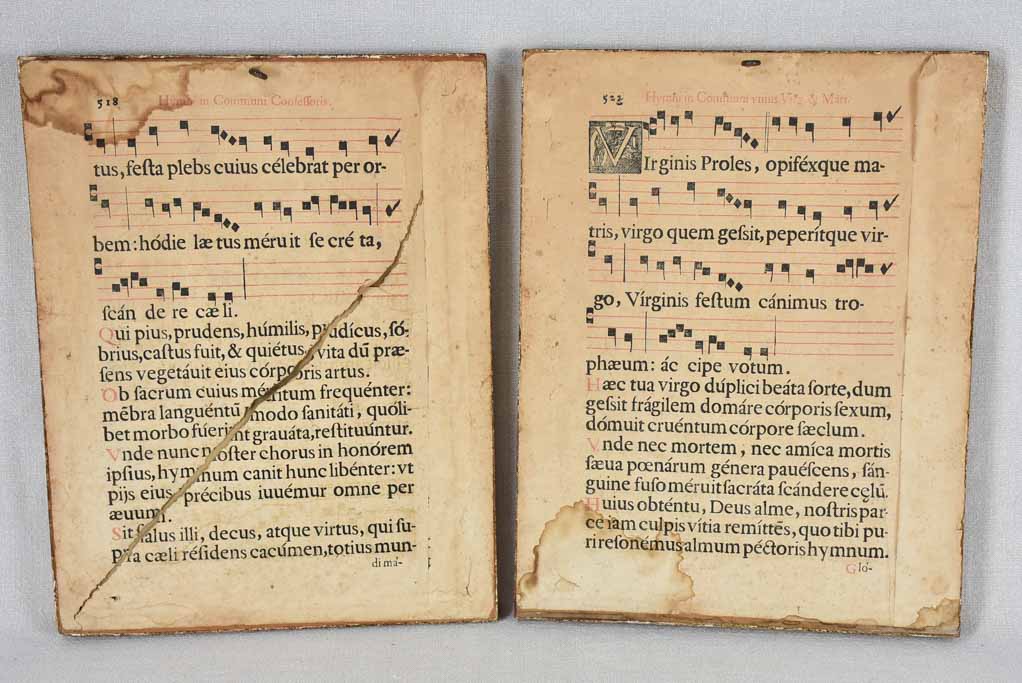 518 Hymni in Communi Confeſſoris.
tus, feſta plebs cuius célebrat per or-
bem: hódie læ tus méru it ſe cré ta,
ſcán de re cæ li.
Qui pius, prudens, húmilis, pudícus, ſó-
brius, caſtus fuit, & quiétus, vita dũ præ-
ſens vegetáuit eius córporis artus.
Ob ſacrum cuius méritum frequénter:
mẽbra languéntũ modo ſanitáti, quóli-
bet morbo fúerint grauáta, reſtituúntur.
Vnde nunc noſter chorus in honórem
ipſius, hymnum canit hunc libénter: vt
pijs eius précibus iuuémur omne per
æuum.
Sit ſalus illi, decus, atque virtus, qui ſu-
pra cæli réſidens cacúmen, totius mun-
di má-
523 Hymni in Communi vnius Virg. & Mart.
VIrginis Proles, opiféxque ma-
tris, virgo quem geſsit, peperítque vir-
go, Vírginis feſtum cánimus tro-
phæum: ác cipe votum.
Hæc tua virgo dúplici beáta ſorte, dum
geſsit frágilem domáre córporis ſexum,
dómuit cruéntum córpore ſæclum.
Vnde nec mortem, nec amíca mortis
ſæua pœnárum génera pauéſcens, ſán-
guine fuſo méruit ſacráta ſcándere cęlũ.
Huius obténtu, Deus alme, noſtris par-
ce iam culpis vítia remíttẽs, quo tibi pu-
ri reſonémus almum péctoris hymnum.
Gló-